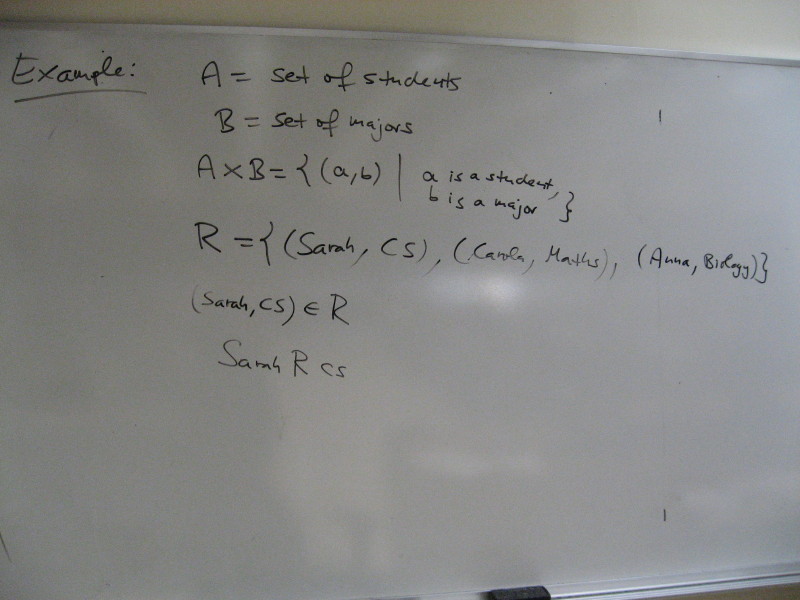 Example:
A = set of students
B = set of majors
A×B = { (a,b) | a is a student,
b is a major }
R = { (Sarah, CS), (Carola, Maths), (Anna, Biology)}
(Sarah, CS) ∈ R
Sarah R CS